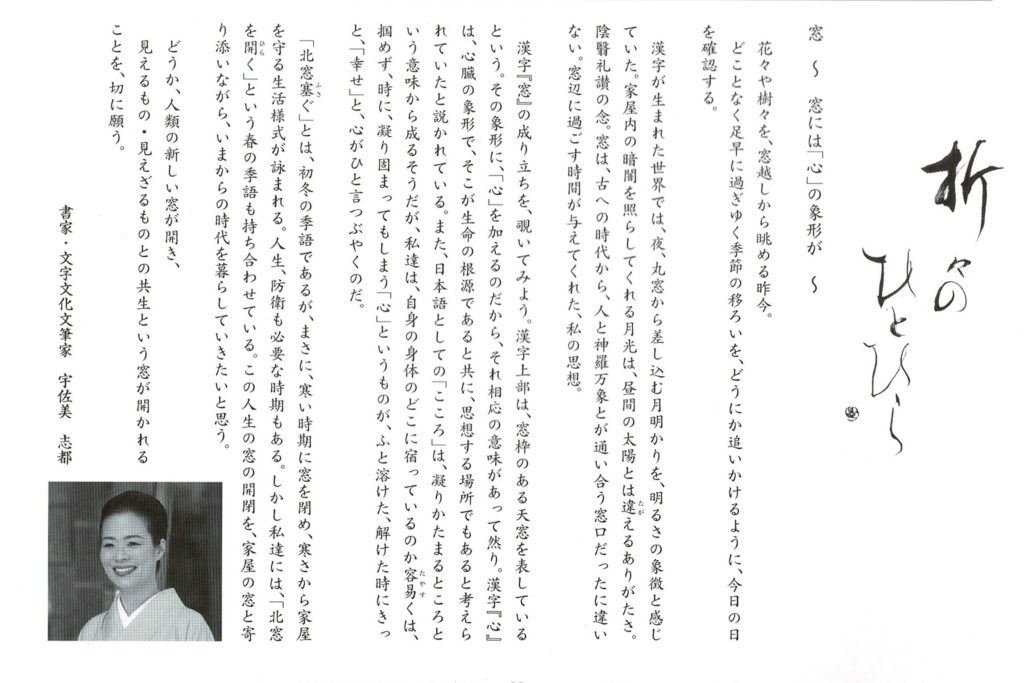 折々の
ひとひら
窓 ～ 窓には「心」の象形が ～
花々や樹々を、窓越しから眺める昨今。
どことなく足早に過ぎゆく季節の移ろいを、どうにか追いかけるように、今日の日
を確認する。
漢字が生まれた世界では、夜、丸窓から差し込む月明かりを、明るさの象徴と感じ
ていた。家屋内の暗闇を照らしてくれる月光は、昼間の太陽とは違えるありがたさ。
たが
陰翳礼讃の念。窓は、古への時代から、人と神羅万象とが通い合う窓口だったに違い
ない。窓辺に過ごす時間が与えてくれた、私の思想。
漢字『窓』の成り立ちを、覗いてみよう。漢字上部は、窓枠のある天窓を表している
という。その象形に、「心」を加えるのだから、それ相応の意味があって然り。漢字『心』
は、心臓の象形で、そこが生命の根源であると共に、思想する場所でもあると考えら
れていたと説かれている。また、日本語としての「こころ」は、凝りかたまるところと
いう意味から成るそうだが、私達は、自身の身体のどこに宿っているのか容易くは、
たやす
掴めず、時に、凝り固まってもしまう「心」というものが、ふと溶けた、解けた時にきっ
と、「幸せ」と、心がひと言つぶやくのだ。
「北窓塞ぐ」とは、初冬の季語であるが、まさに、寒い時期に窓を閉め、寒さから家屋
ふさ
を守る生活様式が詠まれる。人生、防衛も必要な時期もある。しかし私達には、「北窓
を開く」という春の季語も持ち合わせている。この人生の窓の開閉を、家屋の窓と寄
ひら
り添いながら、いまからの時代を暮らしていきたいと思う。
どうか、人類の新しい窓が開き、
見えるもの・見えざるものとの共生という窓が開かれる
ことを、切に願う。
書家・文字文化文筆家 宇佐美 志都